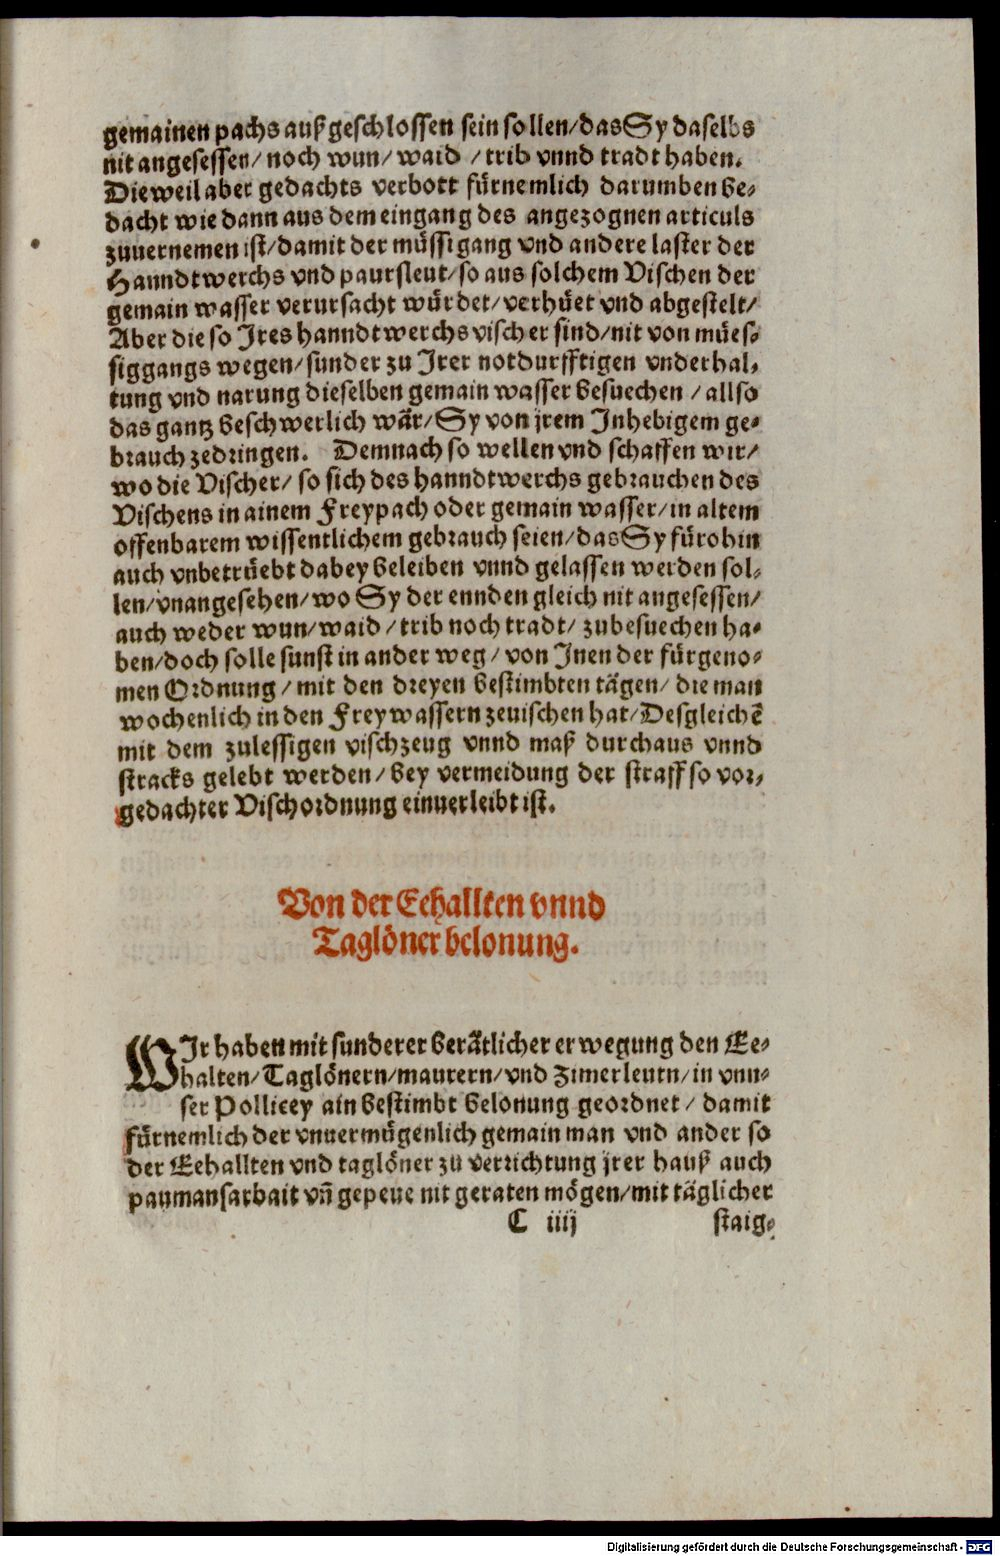 gemainen pachs außgeschlossen sein sollen/das Sy daselbs
nit angesessen/ noch wun/ waid / trib vnnd tradt haben.
Dieweil aber gedachts verbott fürnemlich darumben be-
dacht wie dann aus dem eingang des angezognen articuls
zuuernemen ist/damit der müssigang vnd andere laster der
Hanndtwerchs vnd paursleut/so aus solchem Vischen der
gemain wasser verursacht würdet/verhüet vnd abgestelt/
Aber die so Ires hanndtwerchs vischer sind/nit von mües-
siggangs wegen/sunder zu Irer notdurfftigen vnderhal-
tung vnd narung dieselben gemain wasser besuechen /allso
das gantz beschwerlich wär/Sy von jrem Inhebigem ge-
brauch zedringen. Demnach so wellen vnd schaffen wir/
wo die Vischer/ so sich des hanndtwerchs gebrauchen des
Vischens in ainem Freypach oder gemain wasser/in altem
offenbarem wissentlichem gebrauch seien/das Sy fürohin
auch vnbetrüebt dabey beleiben vnnd gelassen werden sol-
len/vnangesehen/wo Sy der ennden gleich nit angesessen/
auch weder wun/waid /trib noch tradt/ zubesuechen ha-
ben/doch solle sunst in ander weg/ von Inen der fürgeno-
men Ordnung/ mit den dreyen bestimbten tägen/ die man
wochenlich in den Freywassern zeuischen hat/Desgleichē
mit dem zulessigen vischzeug vnnd maß durchaus vnnd
stracks gelebt werden/bey vermeidung der straff so vor-
gedachter Vischordnung einuerleibt ist.
Von der Eehallten vnnd
Taglöner belonung.
WIr haben mit sunderer berätlicher erwegung den Ee-
halten/Taglönern/maurern/vnd Zimerleutn/in vnn-
ser Pollicey ain bestimbt belonung geordnet/ damit
fürnemlich der vnuermügenlich gemain man vnd ander so
der Eehallten vnd taglöner zů verrichtung jrer hauß auch
paumansarbait vñ gepeue nit geraten mögen/mit täglicher
C iiij staig-
Digitalisierung gefördert durch die Deutsche Forschungsgemeinschaft - DFG